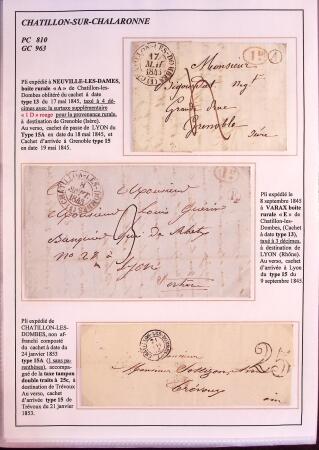 CHATILLON-SUR-CHALARONNE
PC 810
GC 963
Pli expédié à NEUVILLE-LES-DAMES,
boîte rurale « A » de Chatillon-les-
Dombes oblitéré du cachet à date
type 13 du 17 mai 1845, taxé à 4 dé-
cimes avec la surtaxe supplémentaire
« 1 D » rouge pour la provenance rurale,
à destination de Grenoble (Isère).
Au verso, cachet de passe de LYON du
Type 15A en date du 18 mai 1845, et
Cachet d'arrivée de Grenoble type 15
en date 19 mai 1845.
17
MAI
1845
Monsieur
Grande Rue
Grenoble
Isère
Pli expédié le
8 septembre 1845
à VARAX boîte
rurale « E » de
Chatillon-les-
Dombes, (Cachet
à date type 13),
taxé à 3 décimes,
à destination de
LYON (Rhône).
Au verso, cachet
d'arrivée à Lyon
du type 15 du
9 septembre 1845.
Monsieur
Monsieur Louis Guérin
Banquier
No 28 à Lyon
Pli expédié de
CHATILLON-LES-
DOMBES, non af-
franchi composté
du cachet à date du
24 janvier 1853
type 15A (1 sans pa-
renthèses), accompa-
gné de la taxe tampon
double traits à 25c, à
destination de Trévoux
Au verso, cachet d'arri-
vée type 15 de
Trévoux du 21 janvier
1853.
25
Monsieur
Monsieur
Trévoux
ain